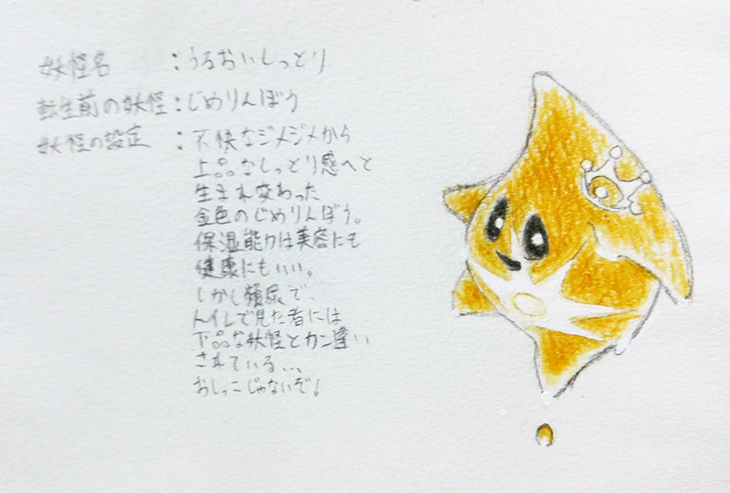 妖怪名　：うるおいしっとり
転生前の妖怪：じめりんぼう
妖怪の設定　：不快なジメジメから
上品なしっとり感へと
生まれ変わった
金色のじめりんぼう。
保湿能力は美容にも
健康にもいい。
しかし頻尿で、
トイレで見た者には
下品な妖怪とカン違い
されている、、、
おしっこじゃないぞ！